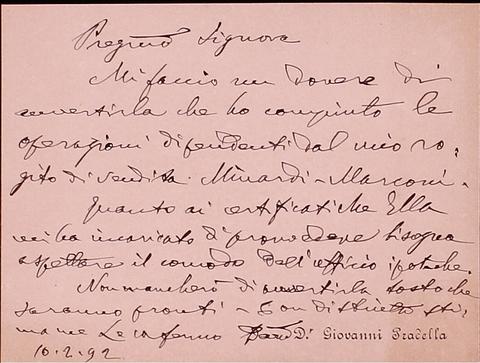 Pregma Signora
Mi faccio un dovere di
avvertirla che ho compiuto le
operazioni dipendenti dal mio ro-
gito di vendita Minardi - Marconi.
Quanto ai certificati che Ella
mi ha incaricato di provvedere bisogna
aspettare il comodo dell'ufficio ipoteche.
Non mancherò di avvertirla tosto che
saranno pronti - Con distinta sti-
ma me Le confermo D.r Giovanni Pradella
10.2.92